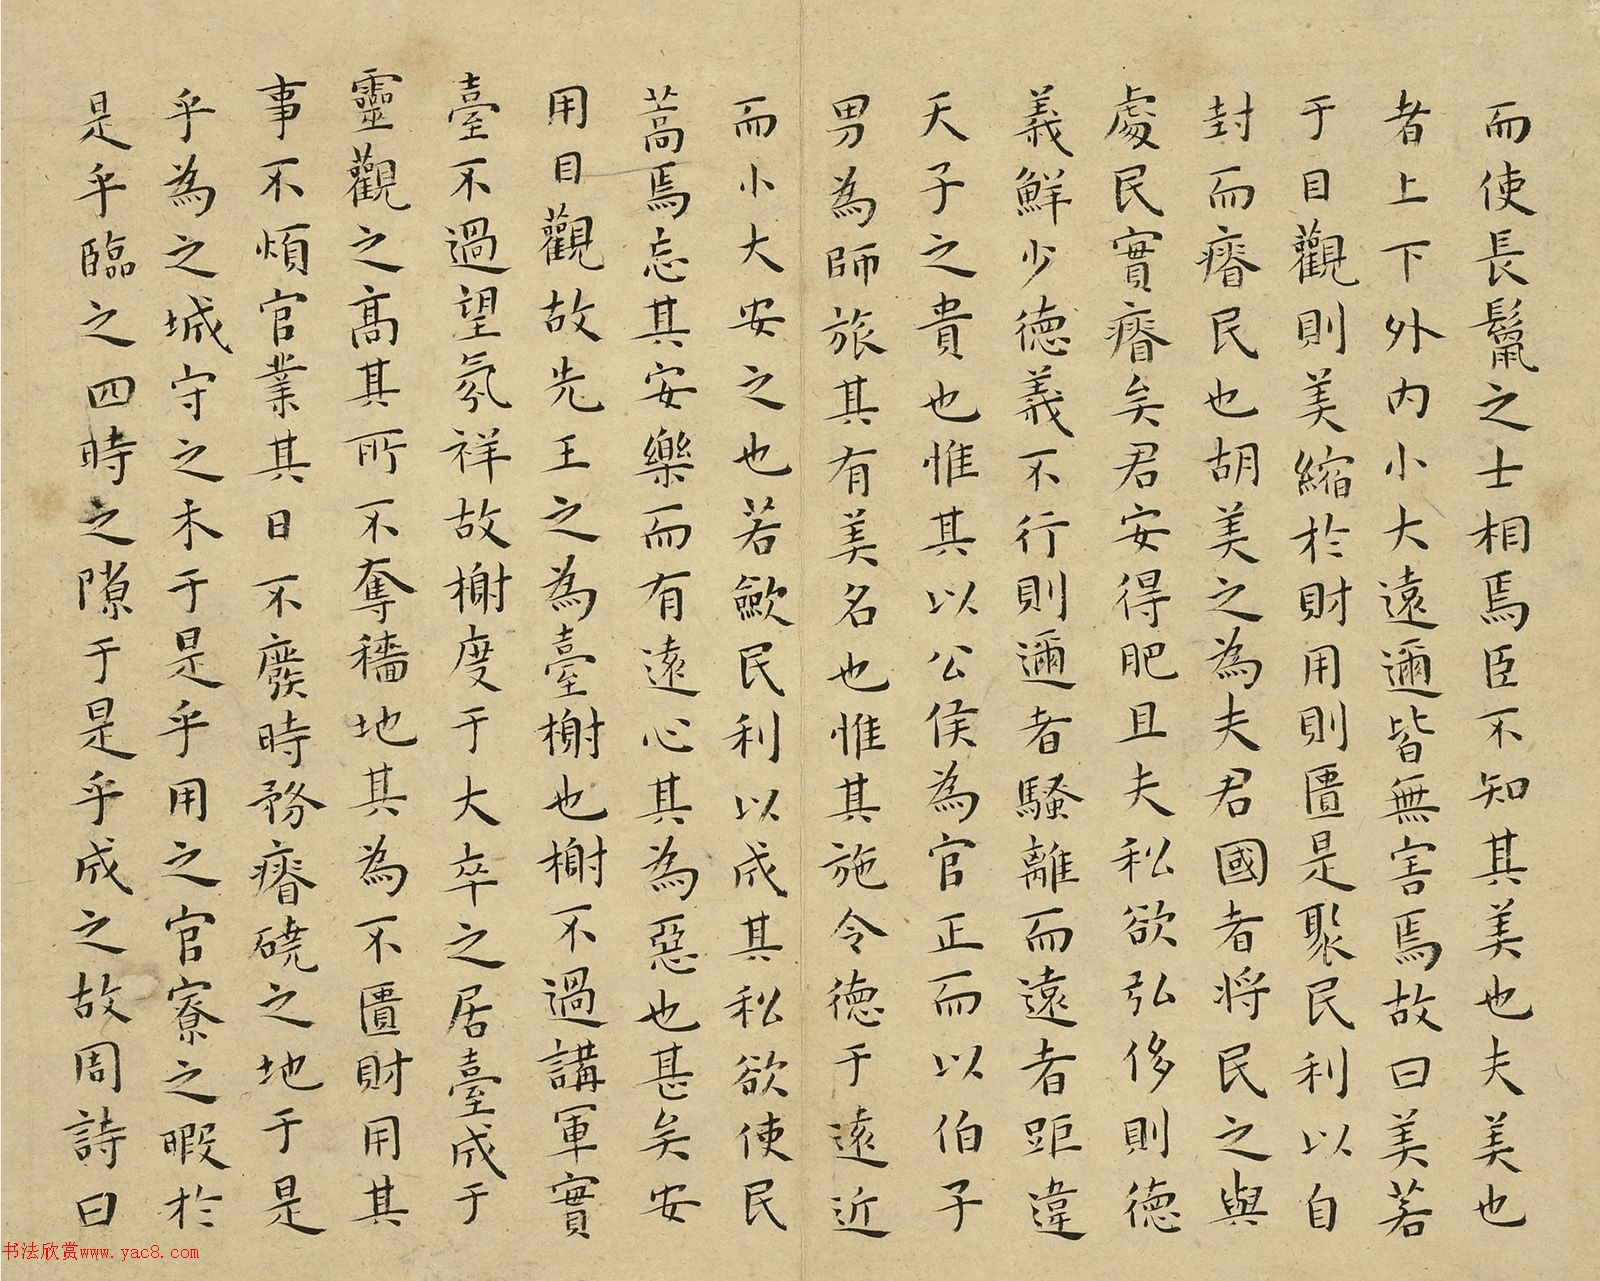 而使長鬣之士相焉臣不知其美也夫美也
者上下外內小大遠邇皆無害焉故曰美若
于目觀則美縮於財用則匱是聚民利以自
封而瘠民也胡美之為夫君國者將民之與
處民實瘠矣君安得肥且夫私欲弘侈則德
義鮮少德義不行則邇者騷離而遠者距違
天子之貴也惟其以公侯為官正而以伯子
男為師旅其有美名也惟其施令德于遠近
而小大安之也若斂民利以成其私欲使民
蒿焉忘其安樂而有遠心其為惡也甚矣安
用目觀故先王之為臺榭也榭不過講軍實
臺不過望氛祥故榭度于大卒之居臺成于
靈觀之高其所不奪穡地其為不匱財用其
事不煩官業其日不廢時務瘠磽之地于是
乎為之城守之木于是乎用之官寮之暇於
是乎臨之四時之隙于是乎成之故周詩曰
书法欣赏www.yac8.com